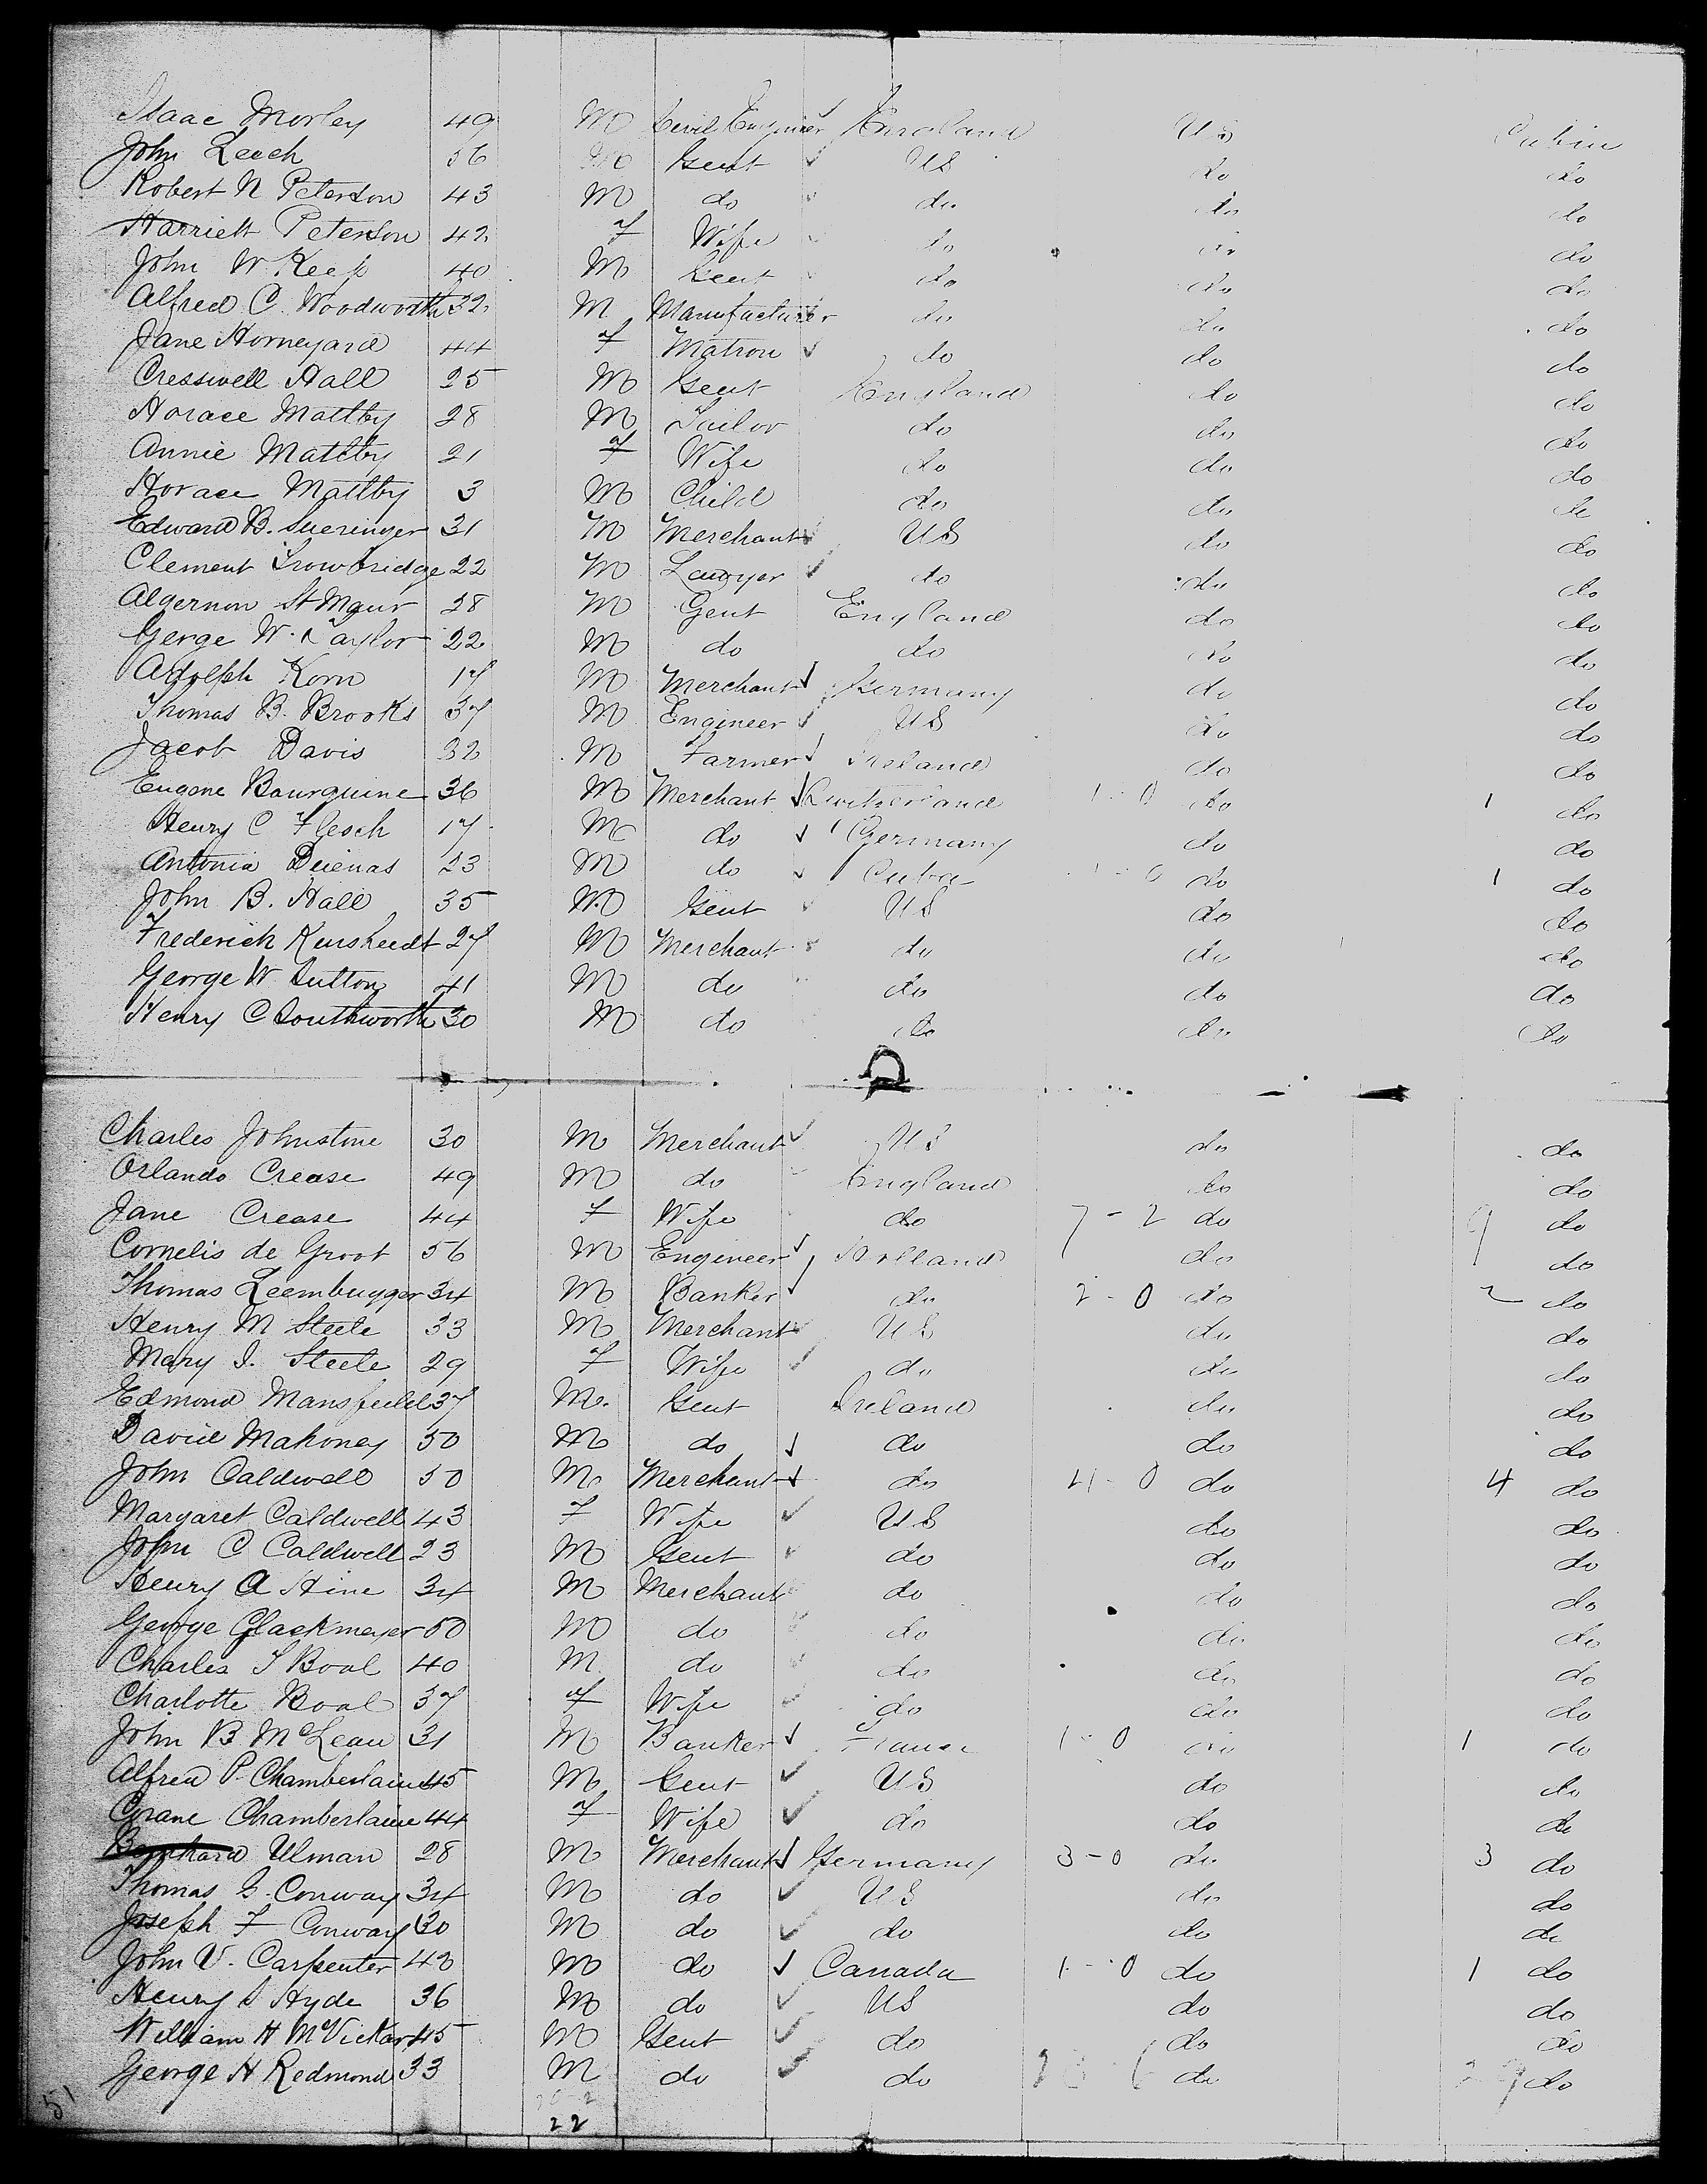 Isaac Morley 49 M Civil Engineer England US Cabin
John Leech 56 M Gent US do do
Robert N Peterson 43 M do do do do
Harriett Peterson 42 f Wife do do do
John W Keep 40 M Gent do do do
Alfred C. Woodworth 32 M Manufacturer do do do
Jane Horneyard 44 f Matron do do do
Cresswell Hall 25 M Gent England do do
Horace Maltby 28 M Tailor do do do
Annie Maltby 21 f Wife do do do
Horace Maltby 3 M Child do do do
Edward B. 31 M Merchant US do do
Clement Trowbridge 22 M Lawyer do do do
Algernon St Maur 28 M Gent England do do
Gerge W. Taylor 22 M do do do do
Adolph Korn 17 M Merchant Germany do do
Thomas B. Brooks 37 M Engineer US do do
Jacob Davis 32 M Farmer Ireland do do
Eugene Bourquine 36 M Merchant Switzerland 1-0 do 1 do
Henry C Flesch 17 M do Germany do do
Antonia 23 M do Cuba 1-0 do 1 do
John B. Hall 35 M Gent US do do
Frederich 27 M Merchant do do do
George W Sutton 41 M do do do do
Henry C Southworth 30 M do do do do
Charles Johnstone 30 M Merchant US do do
Orlando Crease 49 M do England do do
Jane Crease 44 f Wife do 7-2 do 9 do
Cornelis de Groot 56 M Engineer Holland do do
Thomas Leembugger 34 M Banker do 2-0 do 2 do
Henry M Steele 33 M Merchant US do do
Mary J. Steele 29 f Wife do do do
Edmond Mansfield 37 M. Gent Ireland do do
David Mahoney 50 M do do do do
John Caldwell 50 M Merchant do 4-0 do 4 do
Margaret Caldwell 43 f Wife US do do
John C Caldwell 23 M Gent do do do
Henry A Hine 34 M Merchant do do do
George Glackmeyer 50 M do do do do
Charles S Boal 40 M do do do do
Charlotte Boal 37 f Wife do do do
John B McLean 31 M Banker France 1-0 do 1 do
Alfred P. Chamberlaine 45 M Gent US do do
Chamberlaine 44 f Wife do do do
Bernhard Ulman 28 M Merchant Germany 3-0 do 3 do
Thomas G. Conway 34 M do US do do
Joseph F Conway 30 M do do do do
John V. Carpenter 42 M do Canada 1-0 do 1 do
Henry S Hyde 36 M do US do do
William H McVickar 45 M Gent do do do
George H Redmond 33 M do do do 29 do
51
22